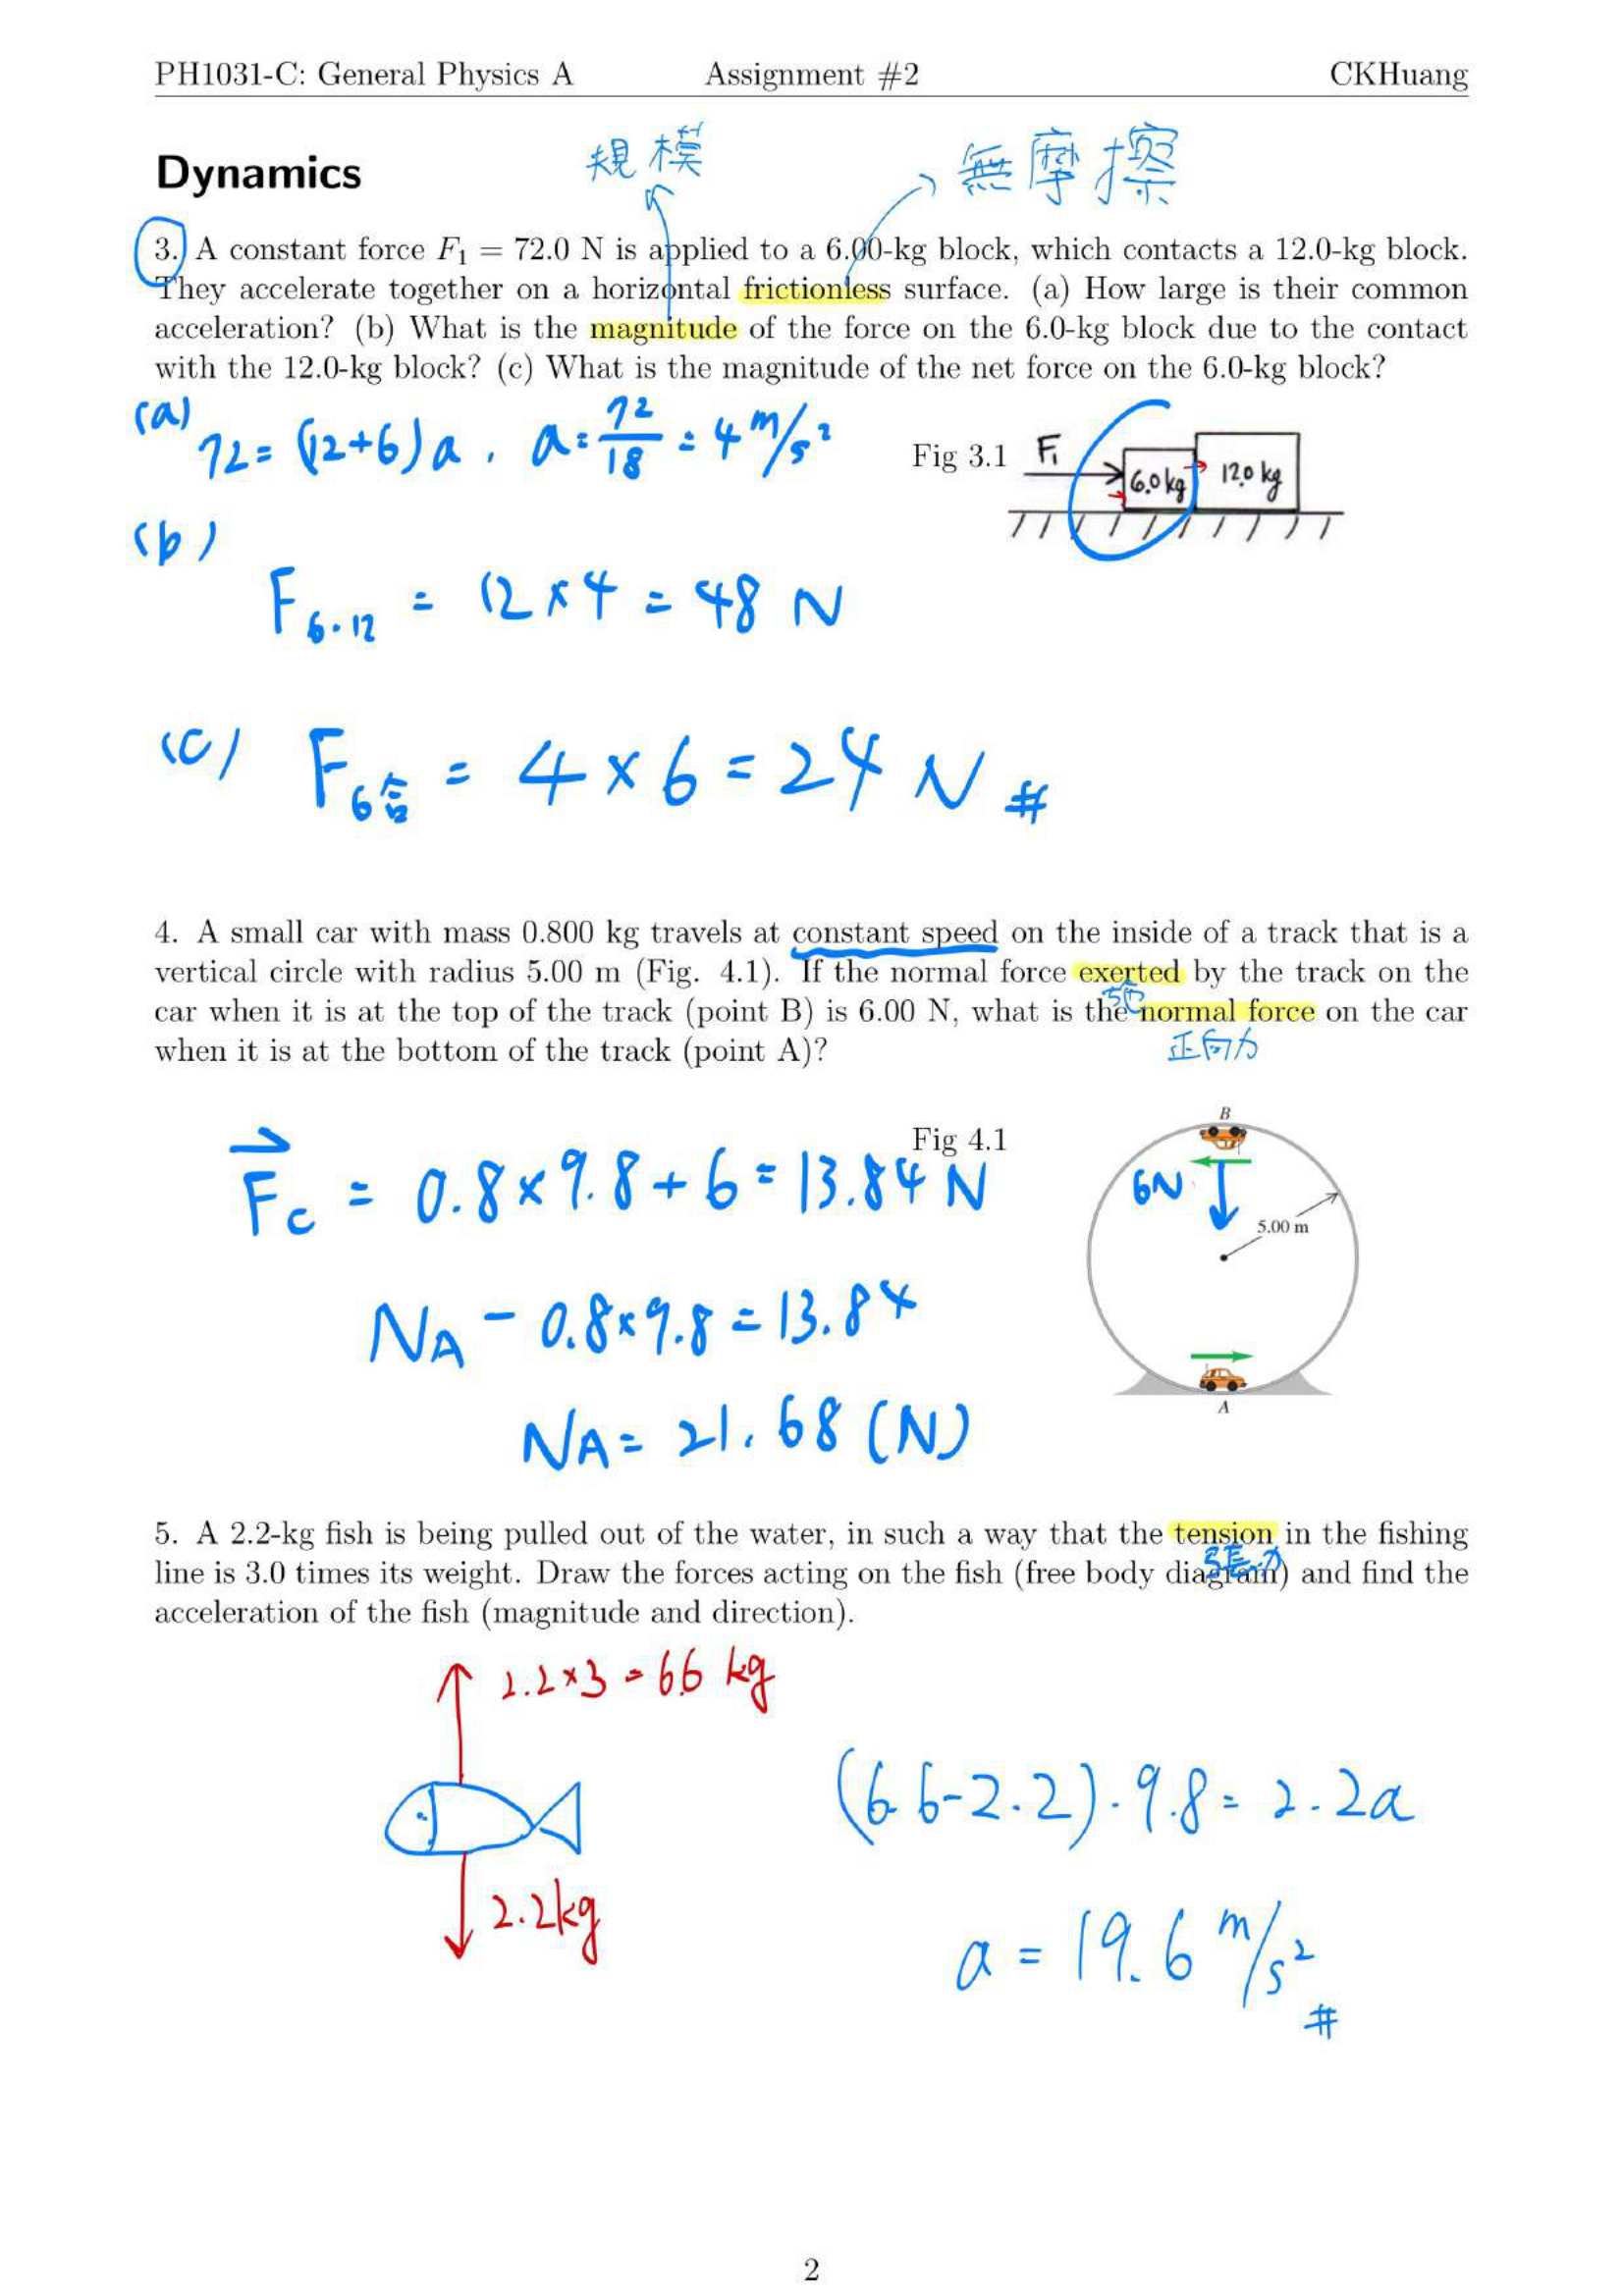 PH1031-C: General Physics A Assignment #2 CKHuang
Dynamics
規模
無摩擦
3. A constant force F₁ = 72.0 N is applied to a 6.00-kg block, which contacts a 12.0-kg block.
They accelerate together on a horizontal frictionless surface. (a) How large is their common
acceleration? (b) What is the magnitude of the force on the 6.0-kg block due to the contact
with the 12.0-kg block? (c) What is the magnitude of the net force on the 6.0-kg block?
(a) 72 = (12+6)a , a = 72/18 = 4 m/s²
Fig 3.1 F₁ 6.0 kg 12.0 kg
(b)
F6.12 = 12 × 4 = 48 N
(c) F6合 = 4 × 6 = 24 N #
4. A small car with mass 0.800 kg travels at constant speed on the inside of a track that is a
vertical circle with radius 5.00 m (Fig. 4.1). If the normal force exerted by the track on the
car when it is at the top of the track (point B) is 6.00 N, what is the normal force on the car
when it is at the bottom of the track (point A)?
正向力
Fig 4.1
B
Fc = 0.8 × 9.8 + 6 = 13.84 N
6N
5.00 m
NA - 0.8 × 9.8 = 13.84
A
NA = 21.68 (N)
5. A 2.2-kg fish is being pulled out of the water, in such a way that the tension in the fishing
張力
line is 3.0 times its weight. Draw the forces acting on the fish (free body diagram) and find the
acceleration of the fish (magnitude and direction).
2.2 × 3 = 6.6 kg
(6.6-2.2)·9.8 = 2.2a
2.2kg
a = 19.6 m/s² #
2